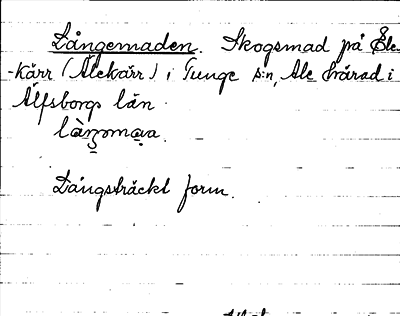 Långemaden. Skogsmad på Äle-
-kärr (Älekärr) i Tunge s:n, Ale härad i
Älfsborgs län.
Långsträckt form.